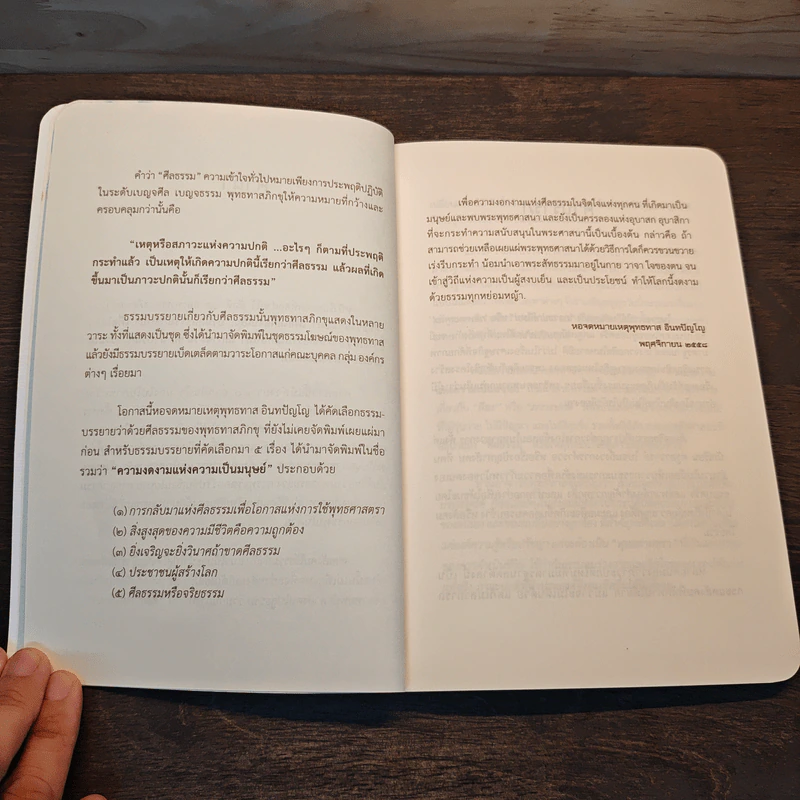 คำว่า “ศีลธรรม” ความเข้าใจทั่วไปหมายเพียงการประพฤติปฏิบัติ
ในระดับเบญจศีล เบญจธรรม พุทธทาสภิกขุให้ความหมายที่กว้างและ
ครอบคลุมกว่านั้นคือ
“เหตุหรือสภาวะแห่งความปกติ ...อะไรๆ ก็ตามที่ประพฤติ
กระทำแล้ว เป็นเหตุให้เกิดความปกตินี้เรียกว่าศีลธรรม แล้วผลที่เกิด
ขึ้นมาเป็นภาวะปกตินั้นก็เรียกว่าศีลธรรม”
ธรรมบรรยายเกี่ยวกับศีลธรรมนั้นพุทธทาสภิกขุแสดงในหลาย
วาระ ทั้งที่แสดงเป็นชุด ซึ่งได้นำมาจัดพิมพ์ในชุดธรรมโฆษณ์ของพุทธทาส
แล้วยังมีธรรมบรรยายเบ็ดเตล็ดตามวาระโอกาสแก่คณะบุคคล กลุ่ม องค์กร
ต่างๆ เรื่อยมา
โอกาสนี้หอจดหมายเหตุพุทธทาส อินทปัญโญ ได้คัดเลือกธรรม-
บรรยายว่าด้วยศีลธรรมของพุทธทาสภิกขุ ที่ยังไม่เคยจัดพิมพ์เผยแผ่มา
ก่อน สำหรับธรรมบรรยายที่คัดเลือกมา ๕ เรื่อง ได้นำมาจัดพิมพ์ในชื่อ
รวมว่า “ความงดงามแห่งความเป็นมนุษย์” ประกอบด้วย
(๑) การกลับมาแห่งศีลธรรมเพื่อโอกาสแห่งการใช้พุทธศาสตรา
(๒) สิ่งสูงสุดของความมีชีวิตคือความถูกต้อง
(๓) ยิ่งเจริญจะยิ่งวินาศถ้าขาดศีลธรรม
(๔) ประชาชนผู้สร้างโลก
(๕) ศีลธรรมหรือจริยธรรม
เพื่อความงอกงามแห่งศีลธรรมในจิตใจแห่งทุกคน ที่เกิดมาเป็น
มนุษย์และพบพระพุทธศาสนา และยังเป็นครรลองแห่งอุบาสก อุบาสิกา
ที่จะกระทำความสนับสนุนในพระศาสนานี้เป็นเบื้องต้น กล่าวคือ ถ้า
สามารถช่วยเหลือเผยแผ่พระพุทธศาสนาได้ด้วยวิธีการใดก็ควรขวนขวาย
เร่งรีบกระทำ น้อมนำเอาพระสัทธรรมมาอยู่ในกาย วาจา ใจของตน จน
เข้าสู่วิถีแห่งความเป็นผู้สงบเย็น และเป็นประโยชน์ ทำให้โลกนี้งดงาม
ด้วยธรรมทุกหย่อมหญ้า.
หอจดหมายเหตุพุทธทาส อินทปัญโญ
พฤศจิกายน ๒๕๕๘